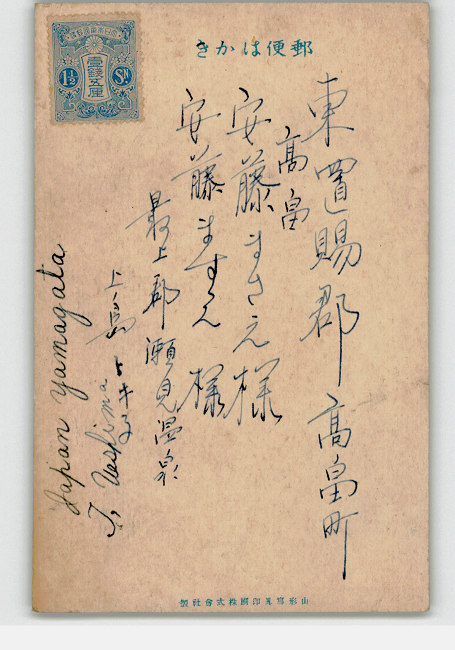 郵便はかき
東置賜郡高畠町
高畠
安藤まさえ様
安藤ますえ様
最上郡瀬見温泉
上島トキ子
T. Ueshima
Japan Yamagata
壹錢五厘
1½ Sn
山形寫眞印刷株式會社製